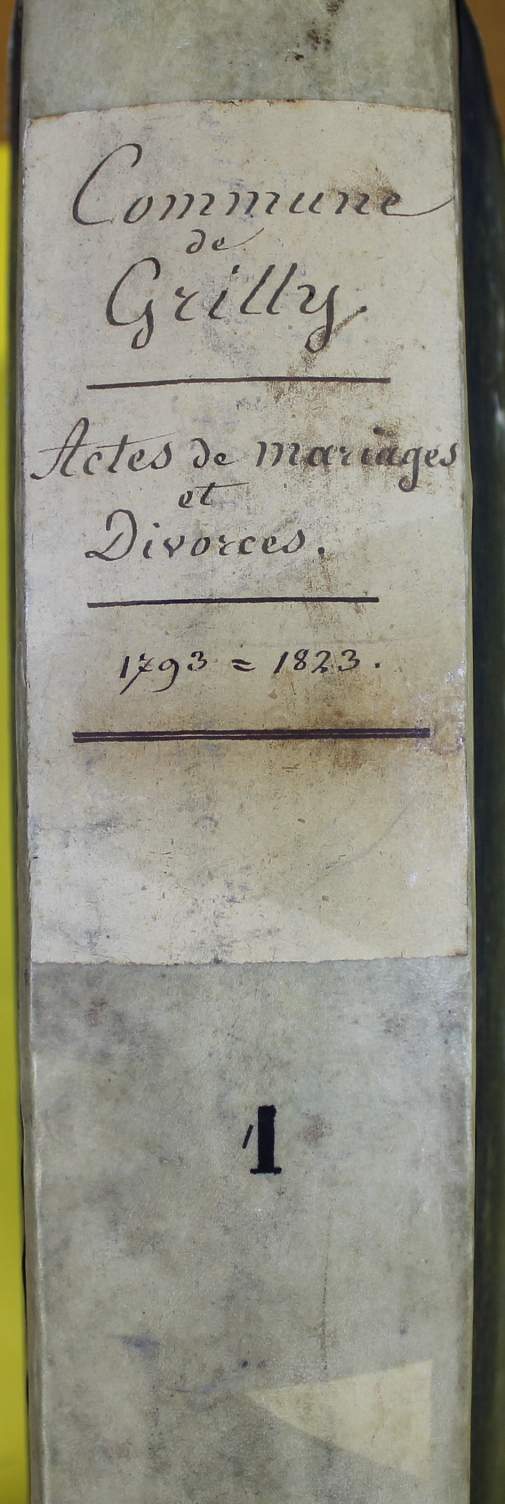 Commune
de
Grilly.
Actes de mariages
et
Divorces.
1793 = 1823.
1